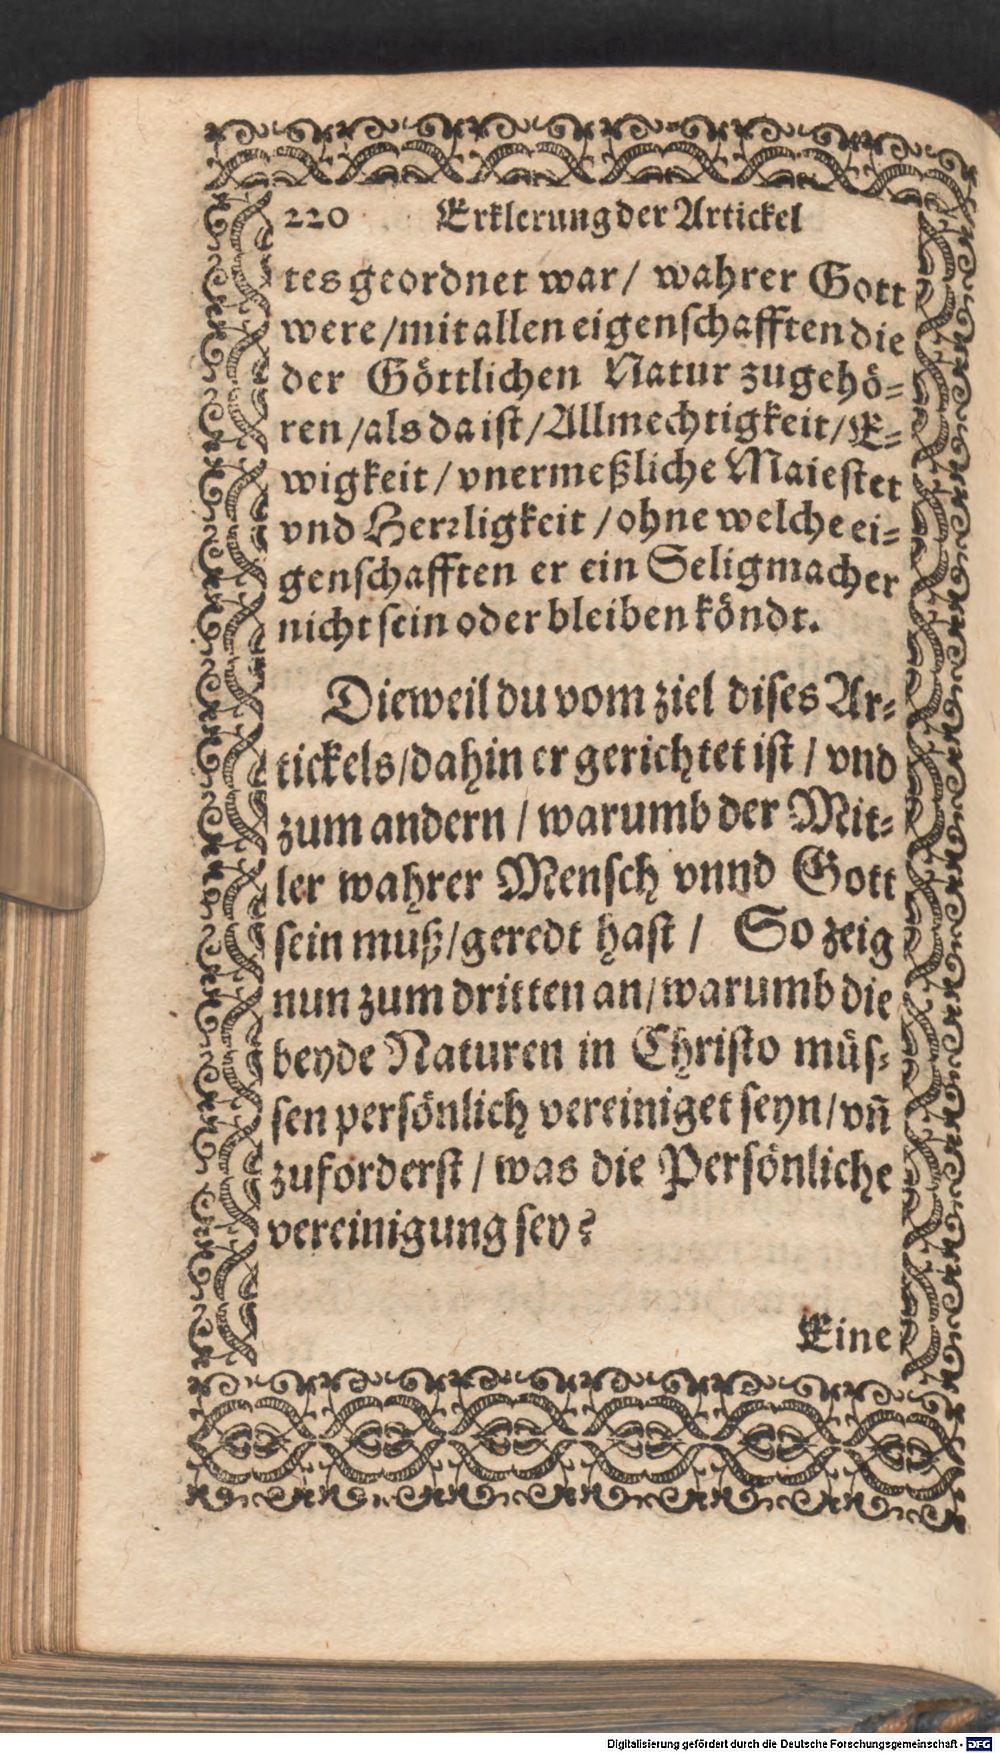 220 Erklerung der Artickel
tes geordnet war / wahrer Gott
were / mit allen eigenschafften die
der Göttlichen Natur zugehö⸗
ren / als da ist / Allmechtigkeit / E⸗
wigkeit / vnermeßliche Maiestet
vnd Herꝛligkeit / ohne welche ei⸗
genschafften er ein Seligmacher
nicht sein oder bleiben köndt.
Dieweil du vom ziel dises Ar⸗
tickels / dahin er gerichtet ist / vnd
zum andern / warumb der Mit⸗
ler wahrer Mensch vnnd Gott
sein muß / geredt hast / So zeig
nun zum dritten an / warumb die
beyde Naturen in Christo müs⸗
sen persönlich vereiniget seyn / vñ
zuforderst / was die Persönliche
vereinigung sey?
Eine
Digitalisierung gefördert durch die Deutsche Forschungsgemeinschaft - DFG